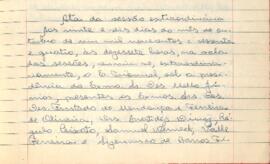 Ata da sessão extraordinária
Aos vinte e dois dias do mês de ou-
tubro de mil novecentos e sessenta
e quatro, às dezessete horas, na sala
das sessões, reuniu-se, extraordinaria-
mente, o Tribunal, sob a presi-
dência do Exmo. Sr. Des.
presentes os Exmos. Srs.
Des. Furtado de Mendonça e Ferreira
de Oliveira, Drs.
Peixoto, Samuel Werneck, Valle
Ferreira e Sigismundo de Barros